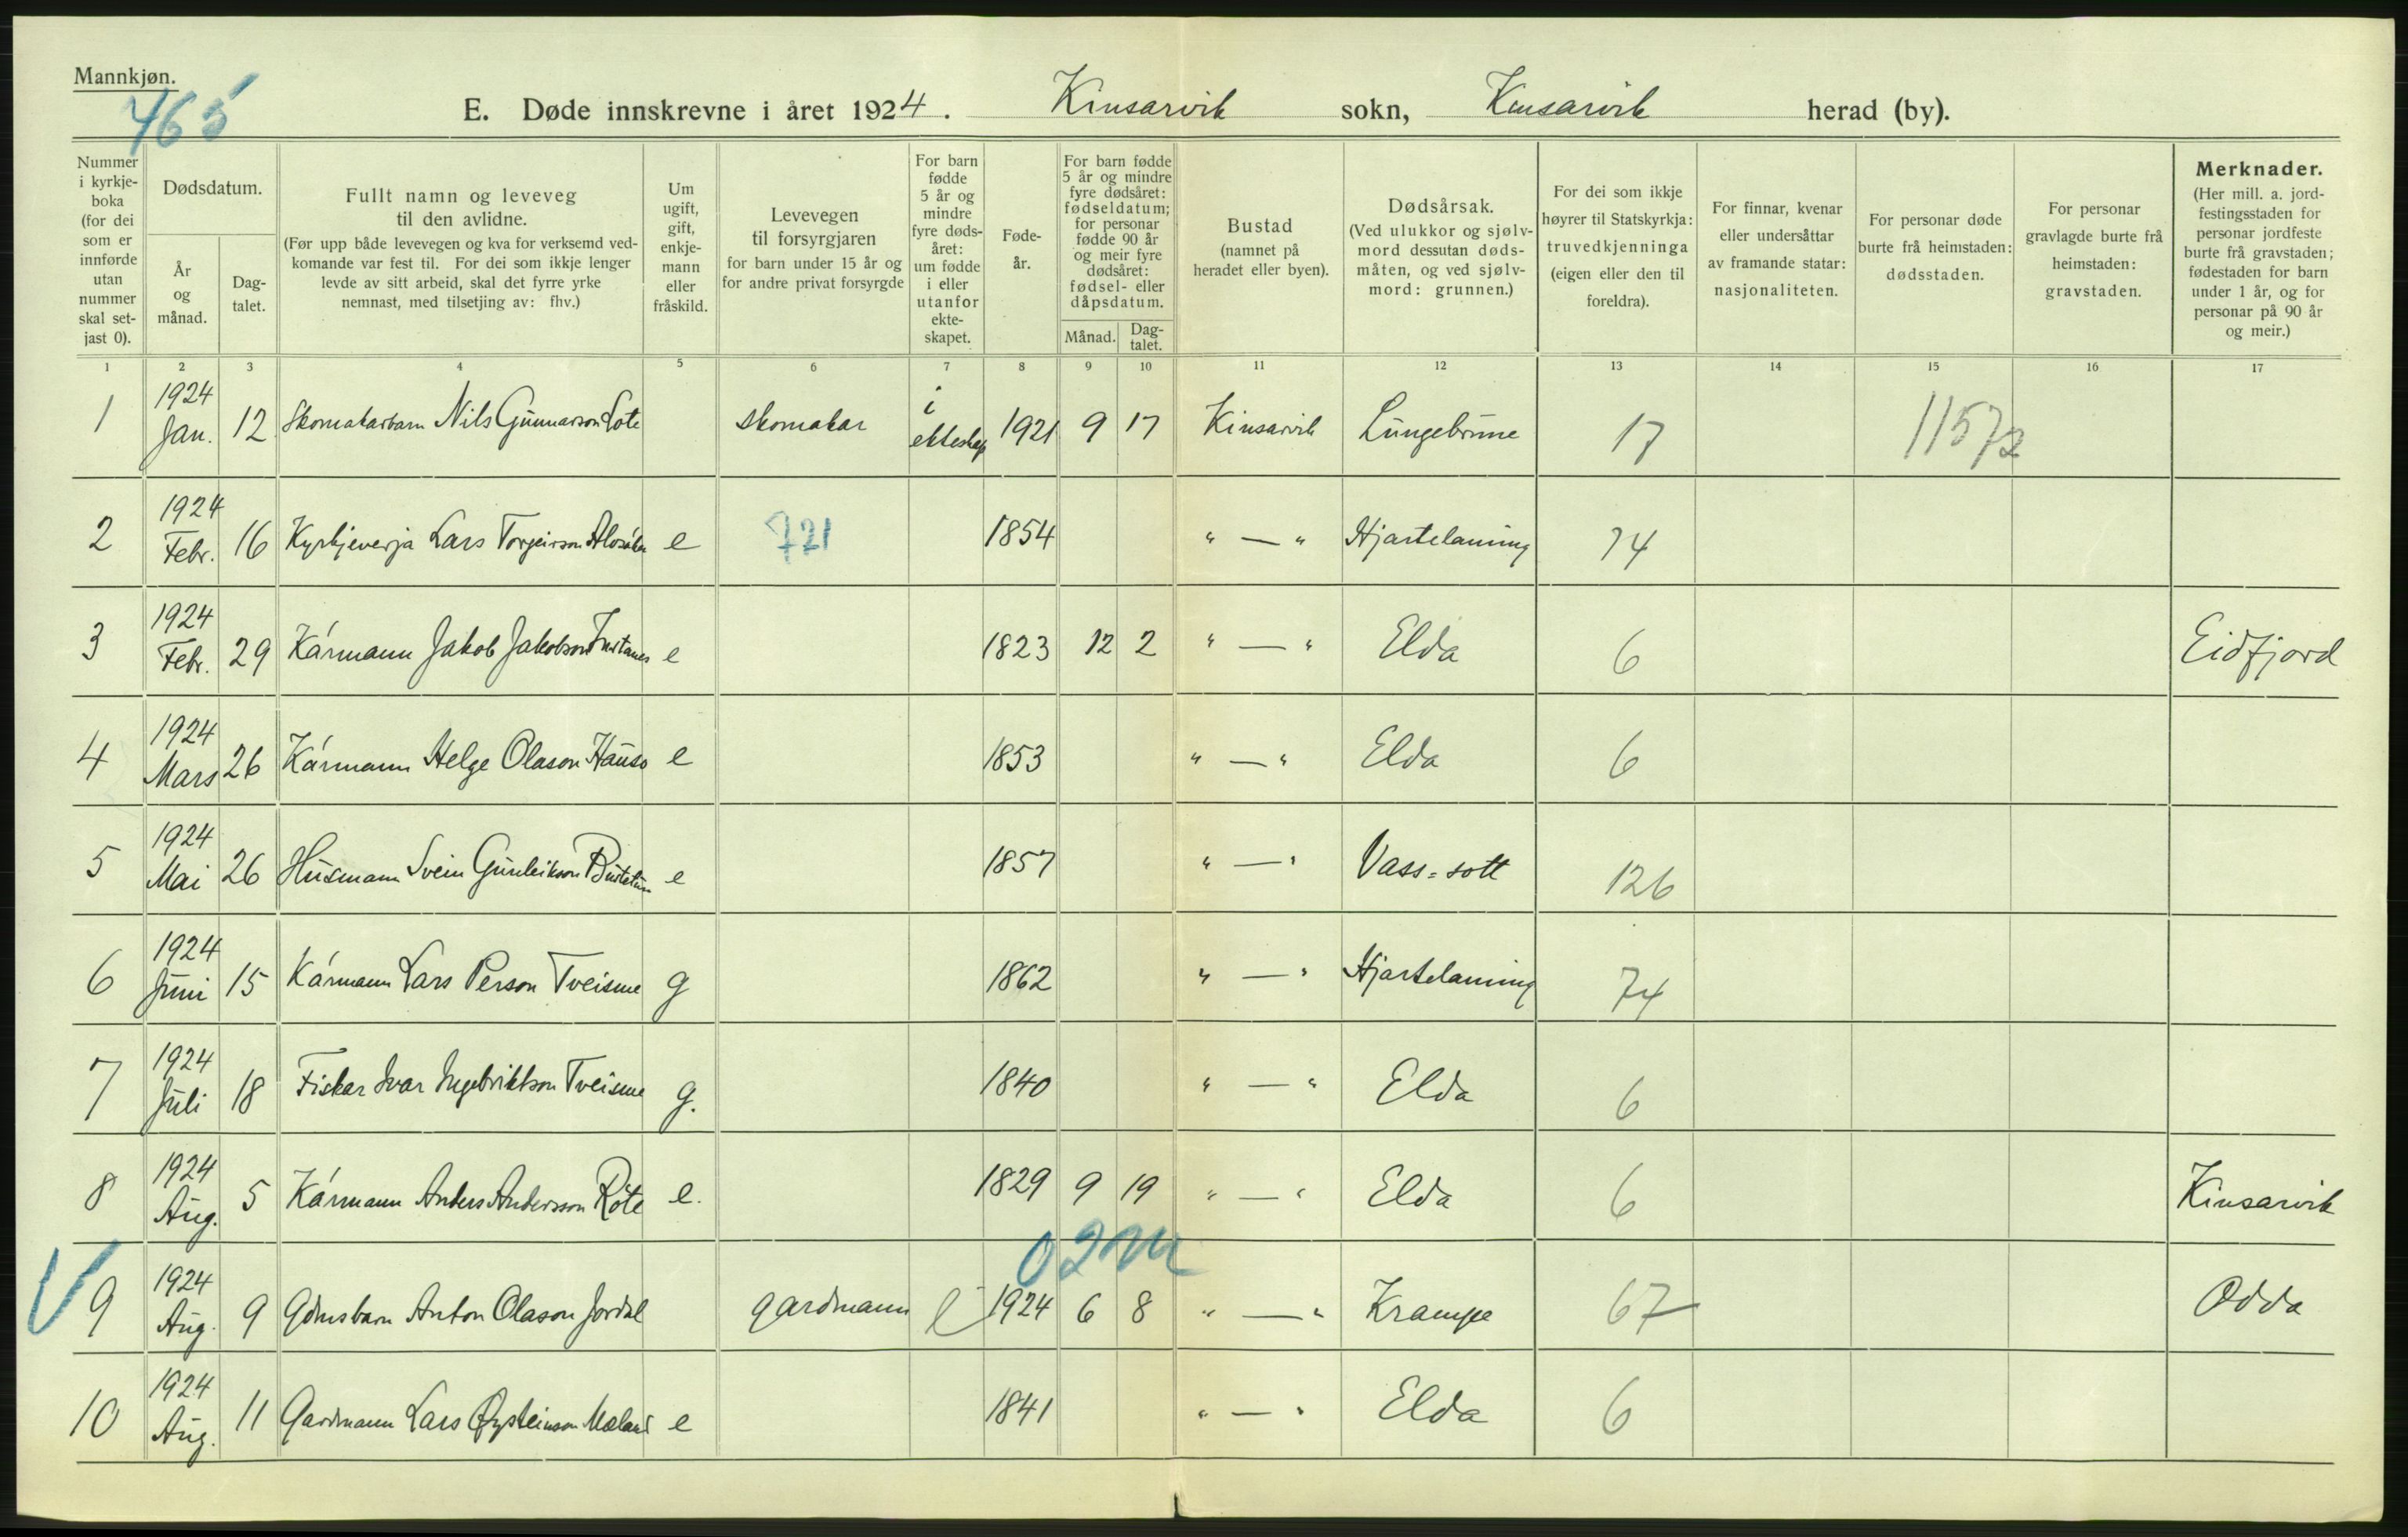 Mannkjøn.
465
E. Døde innskrevne i året 1924. Kinsarvik sokn, Kinsarvik herad (by).
Nummer i kyrkje-boka (for dei som er innførde utan nummer skal set-jast 0).
Dødsdatum.
År og månad.
Dag-talet.
Fullt namn og leveveg til den avlidne.
(Før upp både levevegen og kva for verksemd ved-komande var fest til. For dei som ikkje lenger levde av sitt arbeid, skal det fyrre yrke nemnast, med tilsetjing av: fhv.)
Um ugift, gift, enkje-mann eller fråskild.
Levevegen til forsyrgjaren for barn under 15 år og for andre privat forsyrgde
For barn fødde 5 år og mindre fyre døds-året: um fødde i eller utanfor ekte-skapet.
Føde-år.
For barn fødde 5 år og mindre fyre dødsåret: fødseldatum; for personar fødde 90 år og meir fyre dødsåret: fødsel- eller dåpsdatum.
Månad.
Dag-talet.
Bustad (namnet på heradet eller byen).
Dødsårsak.
(Ved ulukkor og sjølv-mord dessutan døds-måten, og ved sjølv-mord: grunnen.)
For dei som ikkje høyrer til Statskyrkja: truvedkjenninga (eigen eller den til foreldra).
For finnar, kvenar eller undersåttar av framande statar: nasjonaliteten.
For personar døde burte frå heimstaden: dødsstaden.
For personar gravlagde burte frå heimstaden: gravstaden.
Merknader.
(Her mill. a. jord-festingsstaden for personar jordfeste burte frå gravstaden; fødestaden for barn under 1 år, og for personar på 90 år og meir.)
1 2 3 4 5 6 7 8 9 10 11 12 13 14 15 16 17
1 1924 Jan. 12 Skomakarbarn Nils Gunnarson Lote skomakar i ekteskap 1921 9 17 Kinsarvik Lungebrune 17 11572
2 1924 Febr. 16 Kyrkjeverja Lars Torgeirson e 721 1854 " — " Hjartelaming 74
3 1924 Febr. 29 Kármann Jakob Jakobson e 1823 12 2 " — " Elda 6 Eidfjord
4 1924 Mars 26 Kármann Helge Olason Hauso e 1853 " — " Elda 6
5 1924 Mai 26 Husmann Svein Gunleikson e 1857 " — " Vass=sott 126
6 1924 Juni 15 Kármann Lars Person Tveisme g 1862 " — " Hjartelaming 74
7 1924 Juli 18 Fiskar Ivar Ingebriktson Tveisme g. 1840 " — " Elda 6
8 1924 Aug. 5 Kármann Anders Andersson Rote e. 1829 9 19 " — " Elda 6 Kinsarvik
02m
V 9 1924 Aug. 9 Gdmsbarn Anton Olason Jordal gardmann 1924 6 8 " — " Krampe 67 Odda
10 1924 Aug. 11 Gardmann Lars Øysteinson e 1841 " — " Elda 6